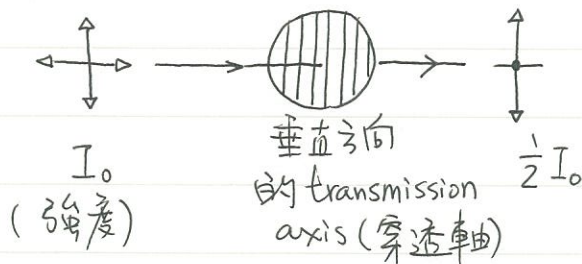 I₀
(強度)
垂直方向
的 transmission
axis (穿透軸)
½ I₀